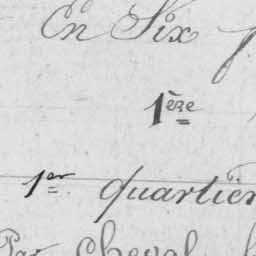 En Six
1ère
1er quartier
Par cheval